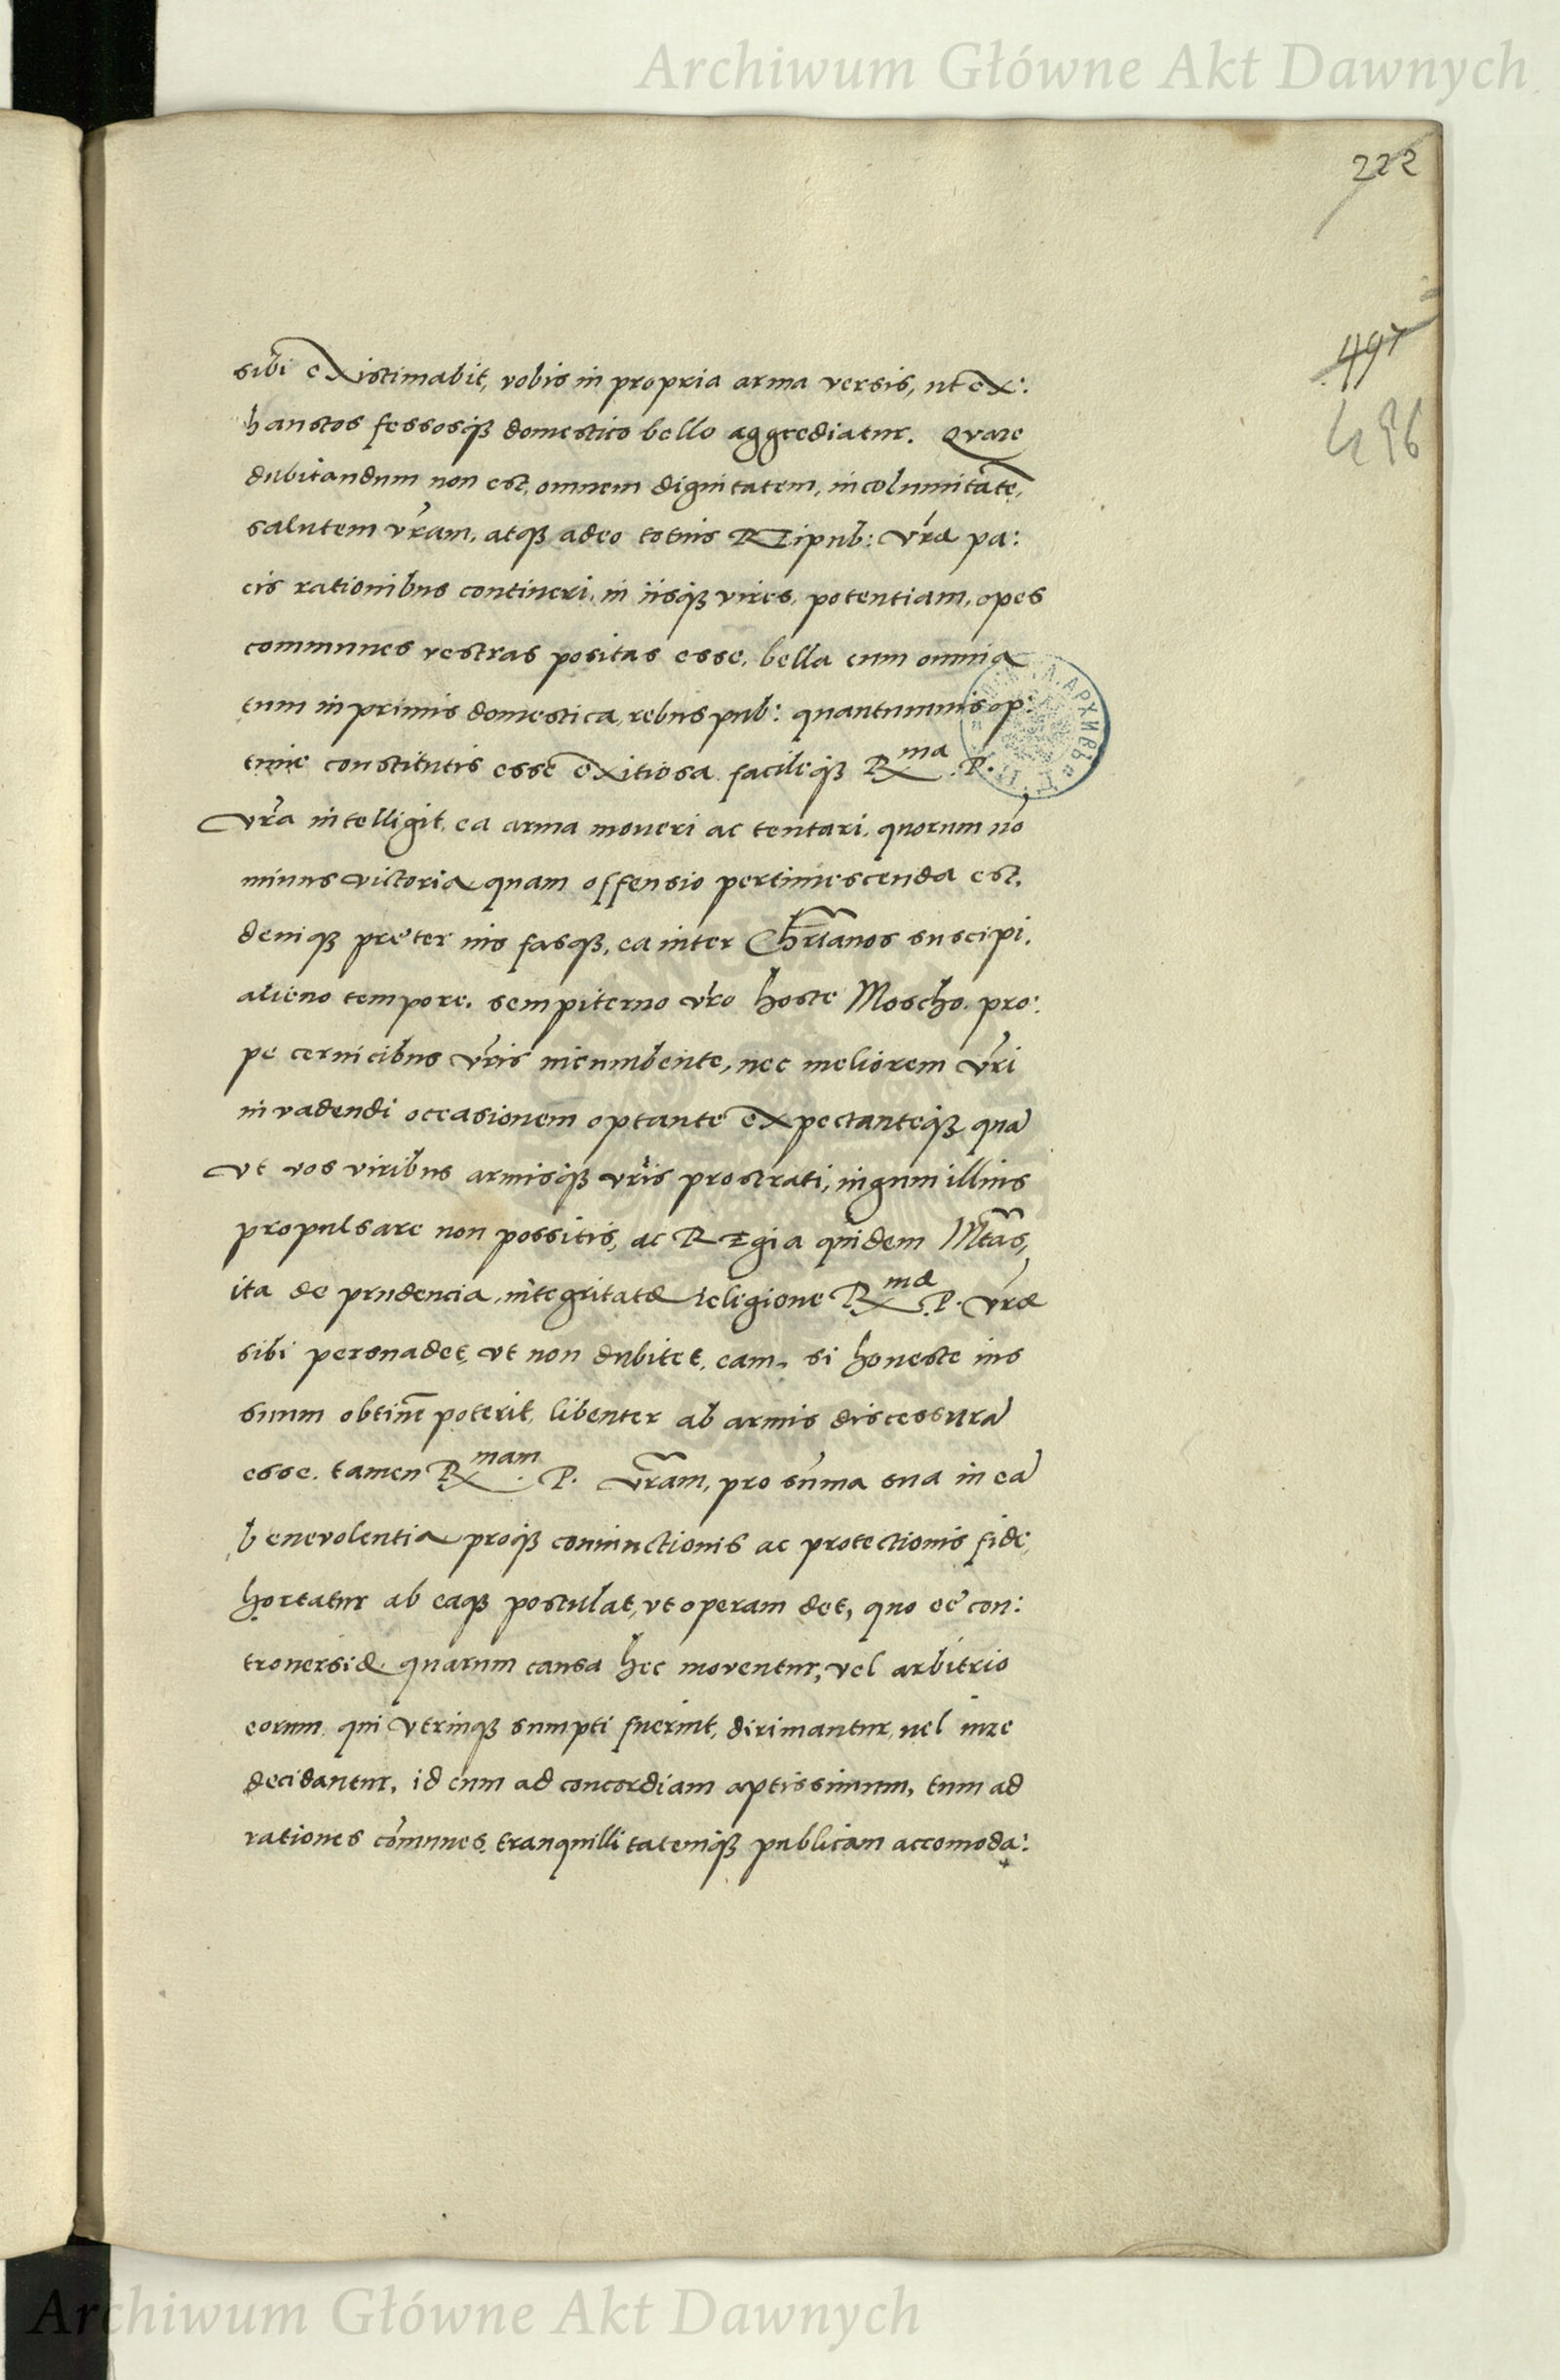 Archiwum Główne Akt Dawnych
222
497
496
sibi existimabit, vobis in propria arma versis, ut ex:
haustos fessosq3 domestico bello aggrediatur. Quare
dubitandum non est, omnem dignitatem, incolumitatē,
salutem vr̄am, atq3 adeo totius REipub: vr̄æ pa:
cis rationibus contineri, in iisq3 vires, potentiam, opes
communes vestras positas esse, bella cum omnia
tum inprimis domestica, rebuspub: quantumuis op:
time constitutis esse exitiosa facileq3 R^ma. P.
vr̄a intelligit, ea arma moueri ac tentari, quorum nō
minus victoria quam offensio pertimescenda est,
deniq3 præter ius fasq3, ea inter Chr̄ianos suscipi,
alieno tempore, sempiterno vr̄o hoste Moscho, pro:
pe ceruicibus vr̄is incumbente, nec meliorem vr̄i
inuadendi occasionem optante expectanteq3 quā
vt vos viribus armisq3 vr̄is prostrati, iugum illius
propulsare non possitis, ac REgia quidem Mtās,
ita de prudencia, integritate religione R^mæ. P. vr̄æ
sibi persuadet, vt non dubitet, eam, si honeste ius
suum obtinē poterit, libenter ab armis discessurā
esse. tamen R^mam. P. vr̄am, pro sūma sua in eā
benevolentia proq3 coniunctionis ac protectionis fide,
hortatur ab eaq3 postulat, vt operam det, quo eē con:
trouersiæ quarum causa hec moventur, vel arbitrio
eorum qui vtrinq3 sumpti fuerint, dirimantur, uel iure
decidantur, id cum ad concordiam aptissimum, tum ad
rationes cōmunes, tranquillitatemq3 publicam accomoda:
Archiwum Główne Akt Dawnych